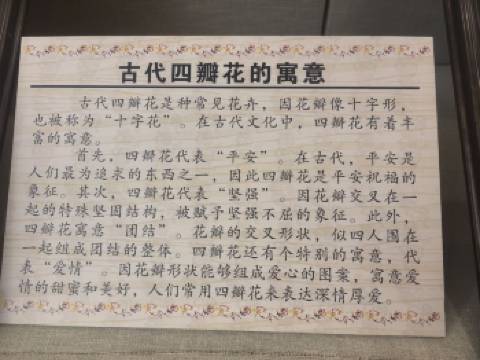 古代四瓣花的寓意
古代四瓣花是种常见花卉，因花瓣像十字形，
也被称为“十字花”。在古代文化中，四瓣花有着丰
富的寓意。
首先，四瓣花代表“平安”。在古代，平安是
人们最为追求的东西之一，因此四瓣花是平安祝福的
象征。其次，四瓣花代表“坚强”。因花瓣交叉在一
起的特殊坚固结构，被赋予坚强不屈的象征。此外，
四瓣花寓意“团结”。花瓣的交叉形状，似四人围在
一起组成团结的整体。四瓣花还有个特别的寓意，代
表“爱情”。因花瓣形状能够组成爱心的图案，寓意爱
情的甜蜜和美好，人们常用四瓣花来表达深情厚爱。